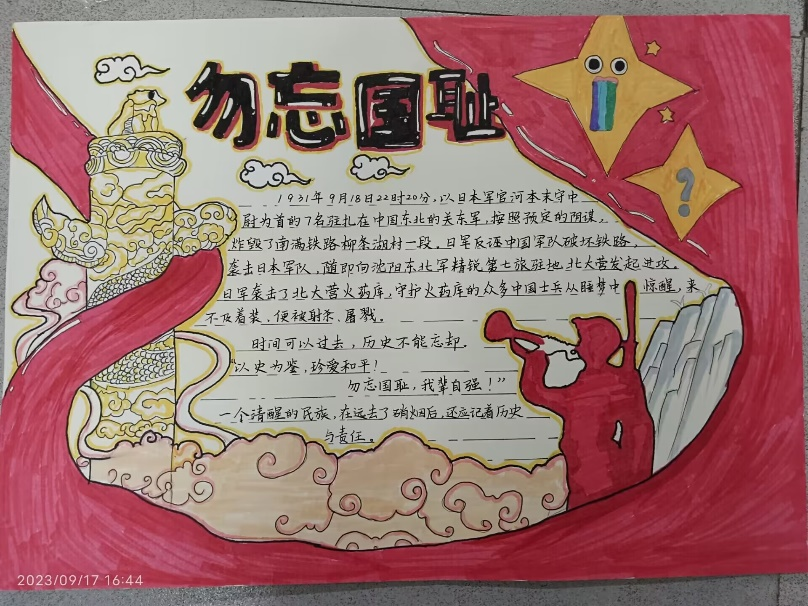 勿忘国耻
1931年9月18日22时20分，以日本军官河本末守中
尉为首的7名驻扎在中国东北的关东军，按照预定的阴谋，
炸毁了南满铁路柳条湖村一段，日军反诬中国军队破坏铁路，
袭击日本军队，随即向沈阳东北军精锐第七旅驻地北大营发起进攻。
日军袭击了北大营火药库，守护火药库的众多中国士兵从睡梦中惊醒，来
不及着装，便被射杀、屠戮。
时间可以过去，历史不能忘却。
“以史为鉴，珍爱和平！
勿忘国耻，我辈自强！”
一个清醒的民族，在远去了硝烟后，还应记着历史
与责任。
?
2023/09/17 16:44